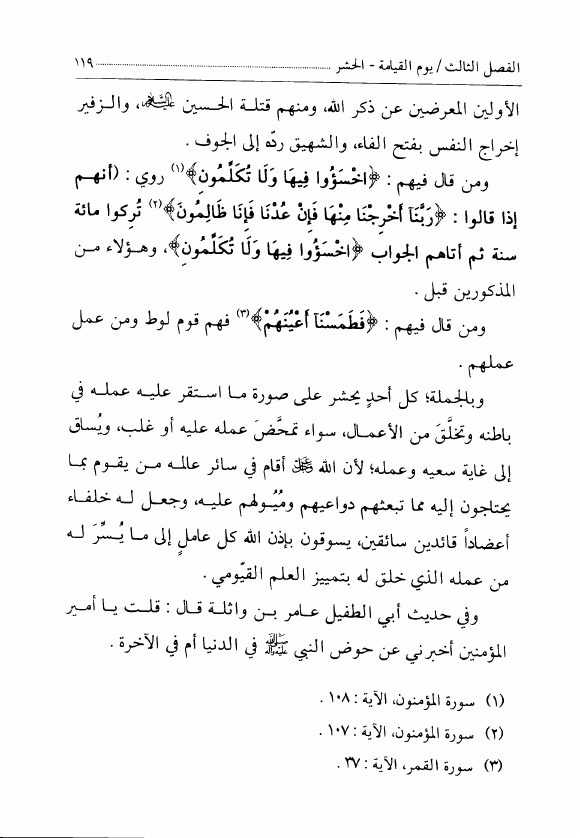 الفصل الثالث / يوم القيامة - الحشر ........................................ ١١٩
الأولين المعرضين عن ذكر الله، ومنهم قتلة الحسين عليه السلام، والزفير
إخراج النفس بفتح الفاء، والشهيق ردّه إلى الجوف .
ومن قال فيهم : ﴿اخْسَؤُوا فِيهَا وَلَا تُكَلِّمُونِ﴾(١) روي : (أنهم
إذا قالوا : ﴿رَبَّنَا أَخْرِجْنَا مِنْهَا فَإِنْ عُدْنَا فَإِنَّا ظَالِمُونَ﴾(٢) تُركوا مائة
سنة ثم أتاهم الجواب ﴿اخْسَؤُوا فِيهَا وَلَا تُكَلِّمُونِ﴾، وهؤلاء من
المذكورين قبل .
ومن قال فيهم : ﴿فَطَمَسْنَا أَعْيُنَهُمْ﴾(٣) فهم قوم لوط ومن عمل
عملهم .
وبالجملة؛ كل أحدٍ يحشر على صورة ما استقر عليه عمله في
باطنه وتخلَّقَ من الأعمال، سواء تمحَّضَ عمله عليه أو غلب، ويُساق
إلى غاية سعيه وعمله؛ لأن الله ﷻ أقام في سائر عالمه من يقوم بما
يحتاجون إليه مما تبعثهم دواعيهم ومُيُولهم عليه، وجعل له خلفاء
أعضاداً قائدين سائقين، يسوقون بإذن الله كل عاملٍ إلى ما يُسِّرَ له
من عمله الذي خلق له بتمييز العلم القيّومي .
وفي حديث أبي الطفيل عامر بن واثلة قال : قلت يا أمير
المؤمنين أخبرني عن حوض النبي ﷺ في الدنيا أم في الآخرة .
(١) سورة المؤمنون، الآية : ١٠٨ .
(٢) سورة المؤمنون، الآية : ١٠٧ .
(٣) سورة القمر، الآية : ٣٧ .